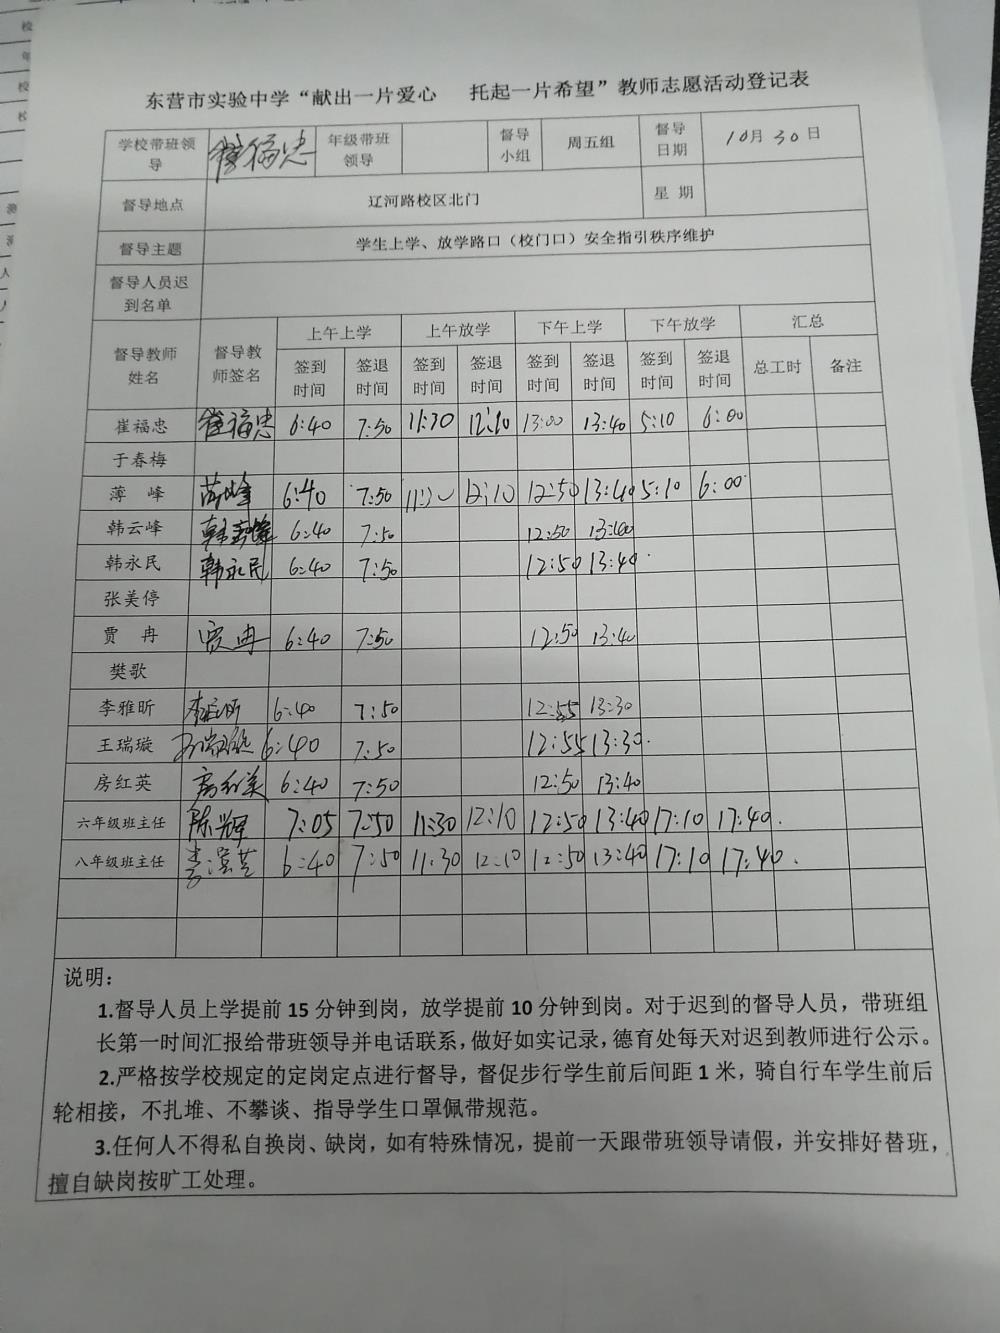 东营市实验中学“献出一片爱心 托起一片希望”教师志愿活动登记表
学校带班领导 崔福忠 年级带班领导 督导小组 周五组 督导日期 10月30日
督导地点 辽河路校区北门 星 期
督导主题 学生上学、放学路口（校门口）安全指引秩序维护
督导人员迟到名单
督导教师姓名 督导教师签名 上午上学 上午放学 下午上学 下午放学 汇总
签到时间 签退时间 签到时间 签退时间 签到时间 签退时间 签到时间 签退时间 总工时 备注
崔福忠 崔福忠 6:40 7:50 11:30 12:10 13:00 13:40 5:10 6:00
于春梅
薄 峰 薄峰 6:40 7:50 11:30 12:10 12:50 13:40 5:10 6:00
韩云峰 韩云峰 6:40 7:50 12:50 13:40
韩永民 韩永民 6:40 7:50 12:50 13:40
张美停
贾 冉 贾冉 6:40 7:50 12:50 13:40
樊歌
李雅昕 李雅昕 6:40 7:50 12:55 13:30
王瑞璇 王瑞璇 6:40 7:50 12:55 13:30
房红英 房红英 6:40 7:50 12:50 13:40
六年级班主任 陈辉 7:05 7:50 11:30 12:10 12:50 13:40 17:10 17:40
八年级班主任 6:40 7:50 11:30 12:10 12:50 13:40 17:10 17:40
说明：
1.督导人员上学提前15分钟到岗，放学提前10分钟到岗。对于迟到的督导人员，带班组
长第一时间汇报给带班领导并电话联系，做好如实记录，德育处每天对迟到教师进行公示。
2.严格按学校规定的定岗定点进行督导，督促步行学生前后间距1米，骑自行车学生前后
轮相接，不扎堆、不攀谈、指导学生口罩佩带规范。
3.任何人不得私自换岗、缺岗，如有特殊情况，提前一天跟带班领导请假，并安排好替班，
擅自缺岗按旷工处理。